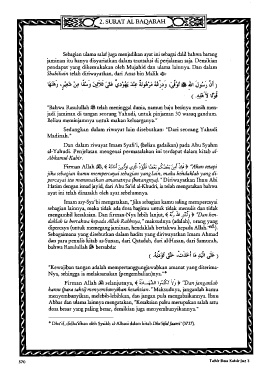 2. SURAT AL BAQARAH
Sebagian ulama salaf juga menjadikan ayat ini sebagai dalil bahwa barang
jaminan itu hanya disyariatkan dalam transaksi di perjalanan saja. Demikian
pendapat yang dikemukakan oleh Mujahid dan ulama lainnya. Dan dalam
Shahihain telah diriwayatkan, dari Anas bin Malik:
"Bahwa Rasulullah ﷺ telah meninggal dunia, namun baju besinya masih men-
jadi jaminan di tangan seorang Yahudi, untuk pinjaman 30 wasaq gandum.
Beliau meminjamnya untuk makan keluarganya."
Sedangkan dalam riwayat lain disebutkan: "Dari seorang Yahudi
Madinah."
Dan dalam riwayat Imam Syafi'i, (beliau gadaikan) pada Abu Syahm
al-Yahudi. Penjelasan mengenai permasalahan ini terdapat dalam kitab al-
Ahkamul Kabir.
Firman Allah
"Akan tetapi
jika sebagian kamu mempercayai sebagian yang lain, maka hendaklah yang di-
percayai itu menunaikan amanatnya (hutangnya)." Diriwayatkan Ibnu Abi
Hatim dengan isnad jayyid, dari Abu Sa'id al-Khudri, ia telah mengatakan bahwa
ayat ini telah dinasakh oleh ayat sebelumnya.
Imam asy-Sya'bi mengatakan, "Jika sebagian kamu saling mempercayai
sebagian lainnya, maka tidak ada dosa bagimu untuk tidak menulis dan tidak
mengambil kesaksian. Dan firman-Nya lebih lanjut,
"Dan hen-
daklah ia bertakwa kepada Allah Rabbnya," maksudnya (adalah), orang yang
dipercaya (untuk memegang jaminan, hendaklah bertakwa kepada Allah
Sebagaimana yang disebutkan dalam hadits yang diriwayatkan Imam Ahmad
dan para penulis kitab as-Sunan, dari Qatadah, dari al-Hasan, dari Samurah,
bahwa Rasulullah ﷺ bersabda:
"Kewajiban tangan adalah mempertanggungjawabkan amanat yang diterima-
Nya, sehingga ia melaksanakan (pengembalian)nya."
Firman Allah
selanjutnya,
"Dan janganlah
kamu (para saksi) menyembunyikan kesaksian." Maksudnya, janganlah kamu
menyembunyikan, melebih-lebihkan, dan jangan pula mengabaikannya. Ibnu
Abbas dan ulama lainnya mengatakan, "Kesaksian palsu merupakan salah satu
dosa besar yang paling besar, demikian juga menyembunyikannya."
Dha'if, didha'ifkan oleh Syaikh al-Albani dalam kitab Dha'iiful Jaami' (3737).
570
Tafsir Ibnu Katsir Juz 3